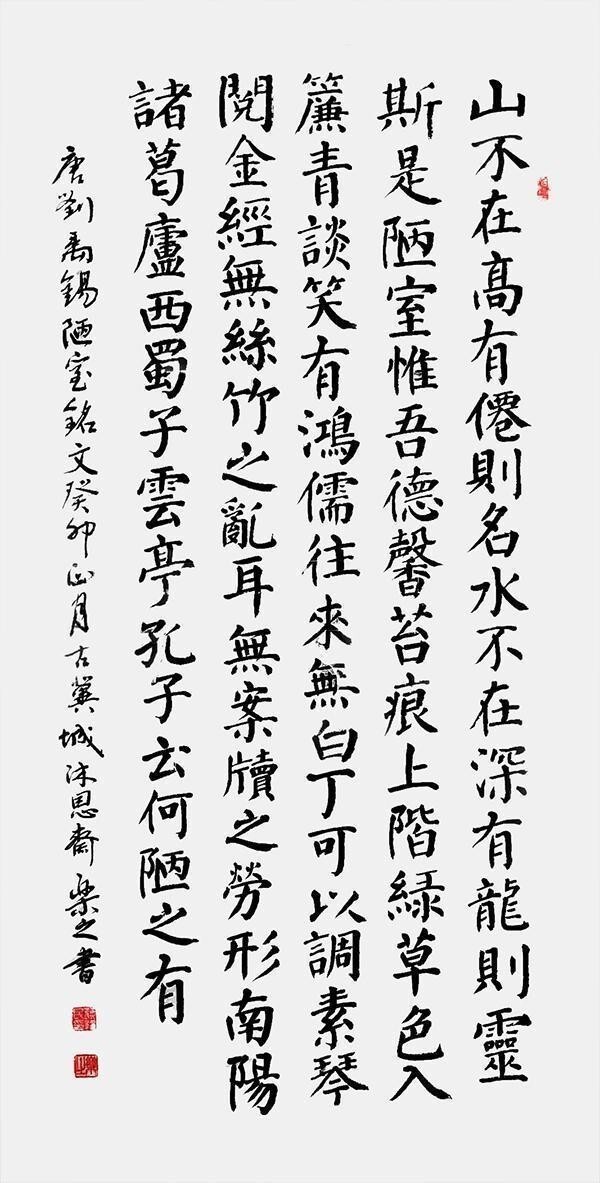 山不在高有僊則名水不在深有龍則靈
斯是陋室惟吾德馨苔痕上階緑草色入
簾青談笑有鴻儒往來無白丁可以調素琴
閱金經無絲竹之亂耳無案牘之勞形南陽
諸葛廬西蜀子雲亭孔子云何陋之有
唐劉禹錫陋室銘文癸卯正月古冀城沐思齋樂之書